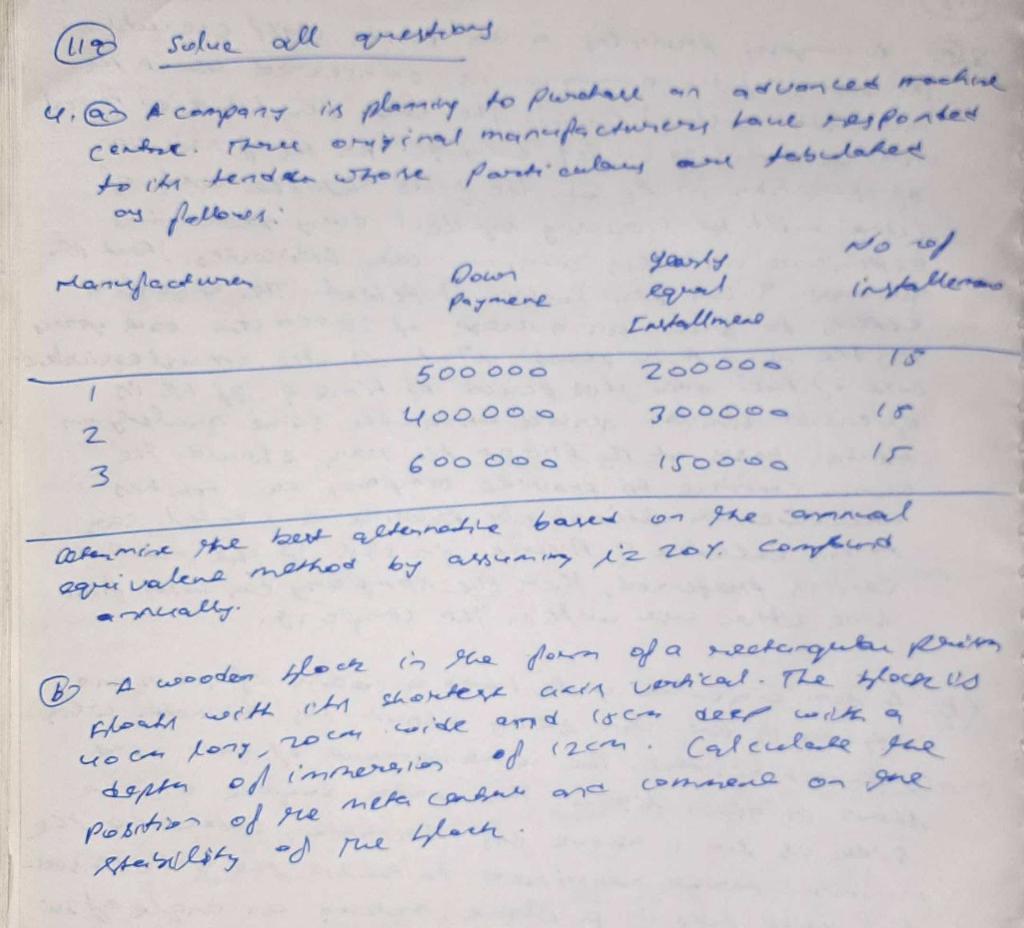 11a Solve all questions
4. a) A company is planning to purchase an advanced machine
centre. Three original manufacturers have responded
to its tender whose particulars are tabulated
as follows:
Manufacturer Down Payment Yearly equal Installment No of installemens
1 500000 200000 15
2 400000 300000 15
3 600000 150000 15
Determine the best alternative based on the annual
equivalent method by assuming i = 20%. Compound
annually.
b) A wooden block in the form of a rectangular prism
floats with its shortest axis vertical. The block is
40 cm long, 20 cm wide and 15 cm deep with a
depth of immersion of 12 cm. Calculate the
position of the meta centre and comment on the
stability of the block.